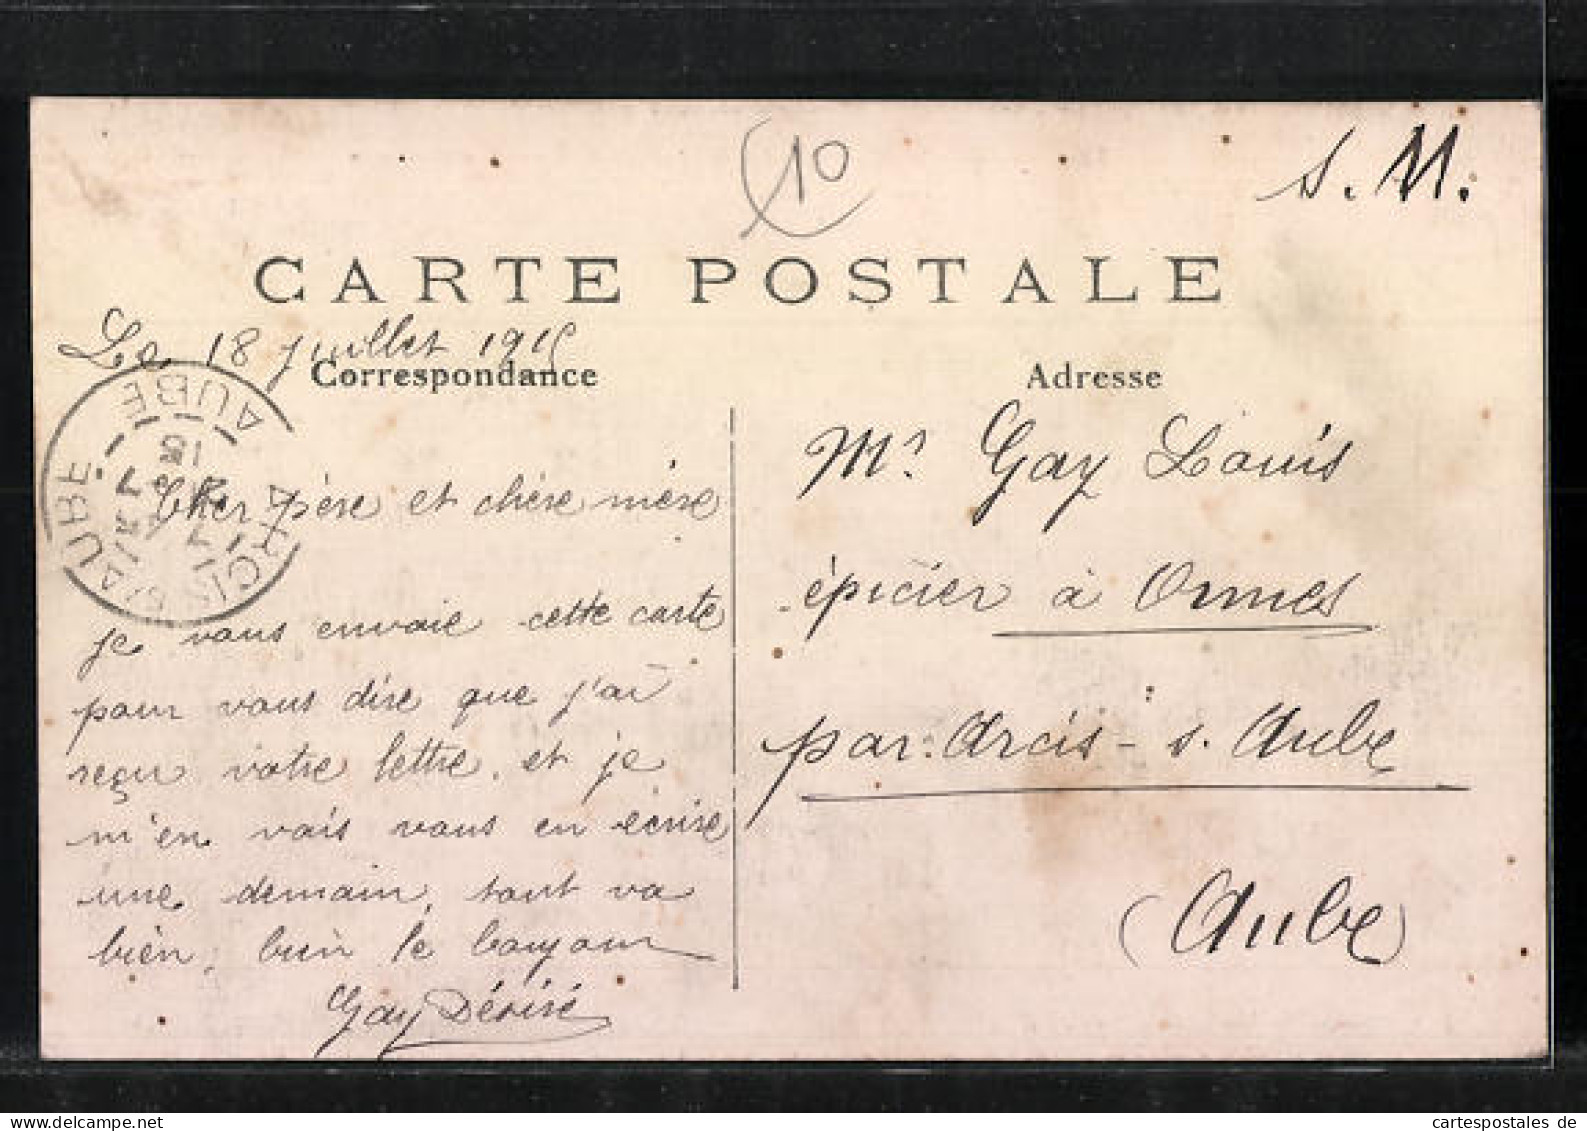 10
S. M.
CARTE POSTALE
Le 18 juillet 1915
Correspondance
Adresse
AUBE
15
ARCIS S/AUBE
Cher père et chère mère
je vous envoie cette carte
pour vous dire que j'ai
reçu votre lettre, et je
m'en vais vous en écrire
une demain, tout va
bien, bien le bonjour
Gay Désiré
Mr. Gay Louis
épicier à Ormes
par Arcis-s. Aube
(Aube)
cartespostales de